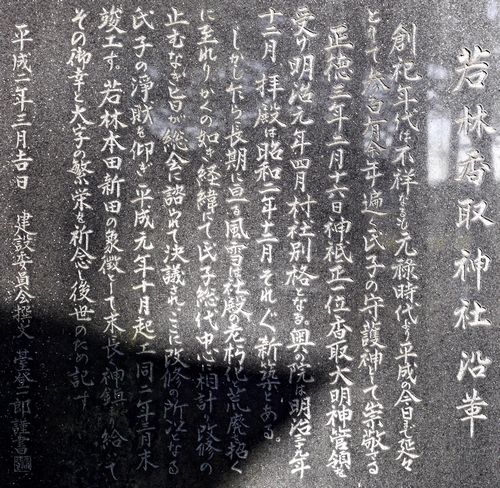 若林香取神社沿革
創祀年代は不祥なるも元禄時代より平成の今日まで延々
として三百有余年遍く氏子の守護神として崇敬する
正徳三年二月十六日神祇正一位香取大明神管領を
受け明治元年四月村社別格となる。奥の院は明治二年
十二月、拝殿は昭和二年十二月それぐ新築とある。
しかしながら長期に亘る風雪は社殿の老朽化と荒廃を招く
に至れりかくの如き経緯にて氏子総代中心に相計り改修の
止むなき旨が総会に諮られて決議されここに改修の所以となる
氏子の浄財を仰ぎ、平成元年十月起工同二年三月末
竣工す。若林本田新田の象徴として末長く神鎮まり給いて
その御幸と大字の繁栄を祈念し後世のため記す
平成二年三月吉日 建設委員会撰文 登一郎謹書